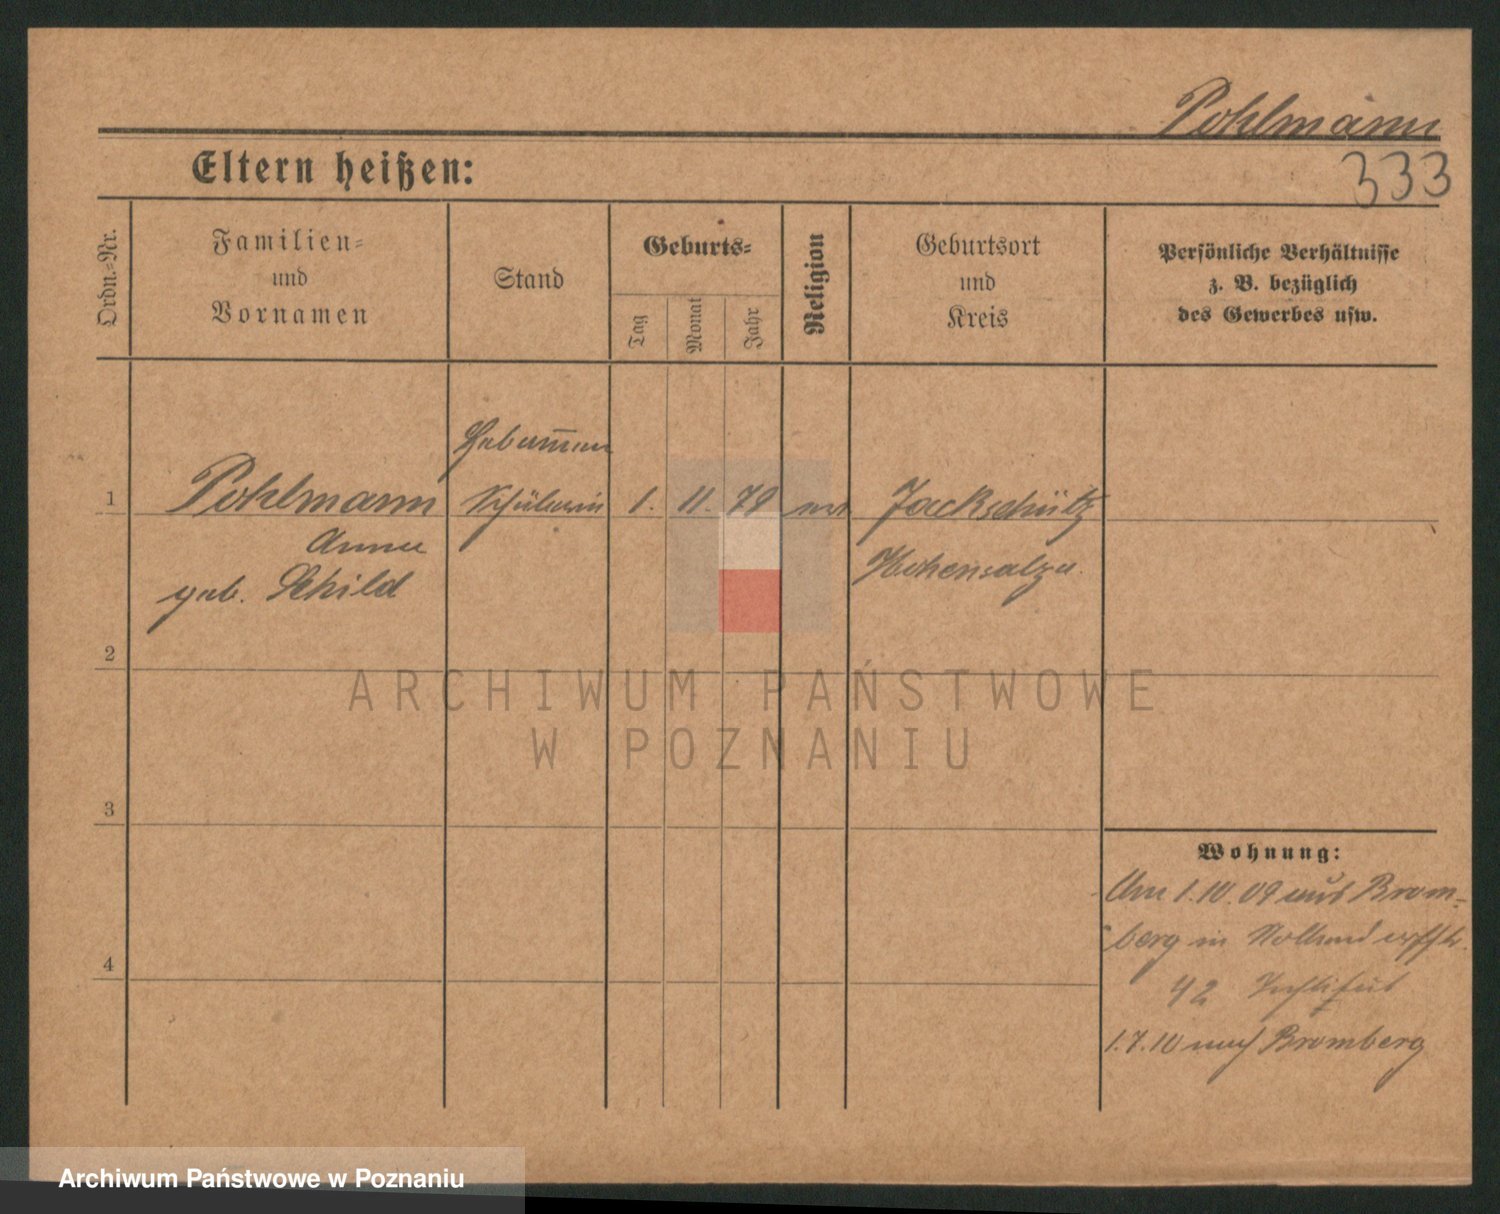 Pohlmann
Eltern heißen:
333
Ordn.-Nr.
Familien-
und
Vornamen
Stand
Geburts-
Tag
Monat
Jahr
Religion
Geburtsort
und
Kreis
Persönliche Verhältnisse
z. B. bezüglich
des Gewerbes usw.
1
Pohlmann
Anna
geb. Schild
Hebammen
Schülerin
1.
11.
79
Jackschütz
Hohensalza
2
3
4
ARCHIWUM PAŃSTWOWE
W POZNANIU
Wohnung:
Am 1.10.09 aus Brom-
berg in
42 Institut
1.7.10 nach Bromberg
Archiwum Państwowe w Poznaniu